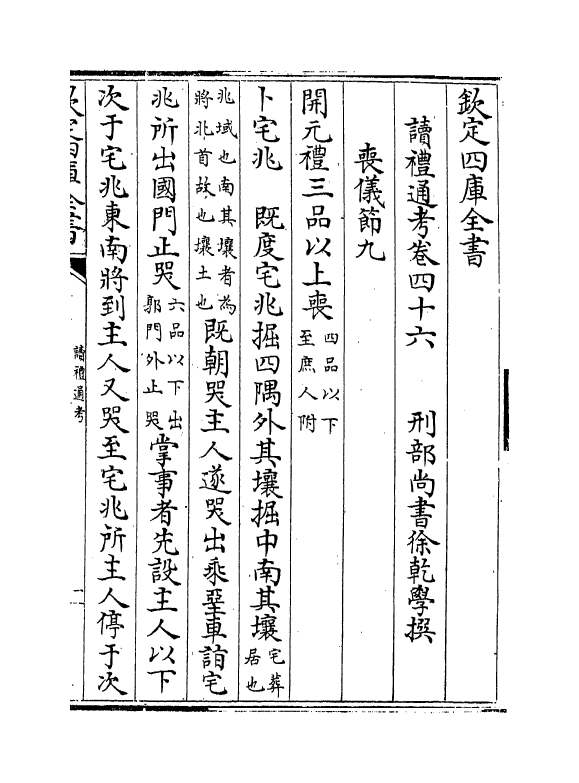 欽定四庫全書
讀禮通考卷四十六 刑部尚書徐乾學撰
喪儀節九
開元禮三品以上喪四品以下至庶人附
卜宅兆 既度宅兆掘四隅外其壤掘中南其壤宅葬居也
兆域也南其壤者為將北首故也壤土也既朝哭主人遂哭出乘堊車詣宅
兆所出國門止哭六品以下出郭門外止哭掌事者先設主人以下
次于宅兆東南將到主人又哭至宅兆所主人停于次
欽定四庫全書
讀禮通考